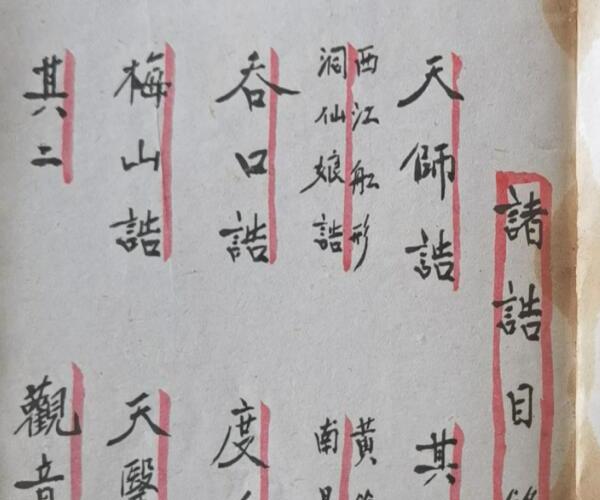 諸誥目
天師誥
其
西江船形
洞仙娘誥
黃
南
吞口誥
度
梅山誥
天醫
其二
觀音